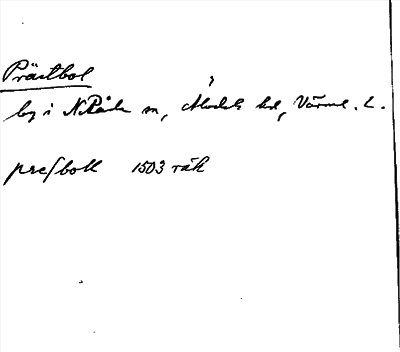 Prästbol
by i N Råda sn, Älvdals hd, Värml. l.
prestboll 1503 räk